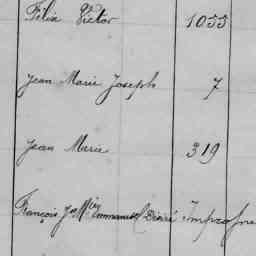 Félix Victor 1055
Jean Marie Joseph 7
Jean Marie 319
François Jh Mie Emmanuel Désiré